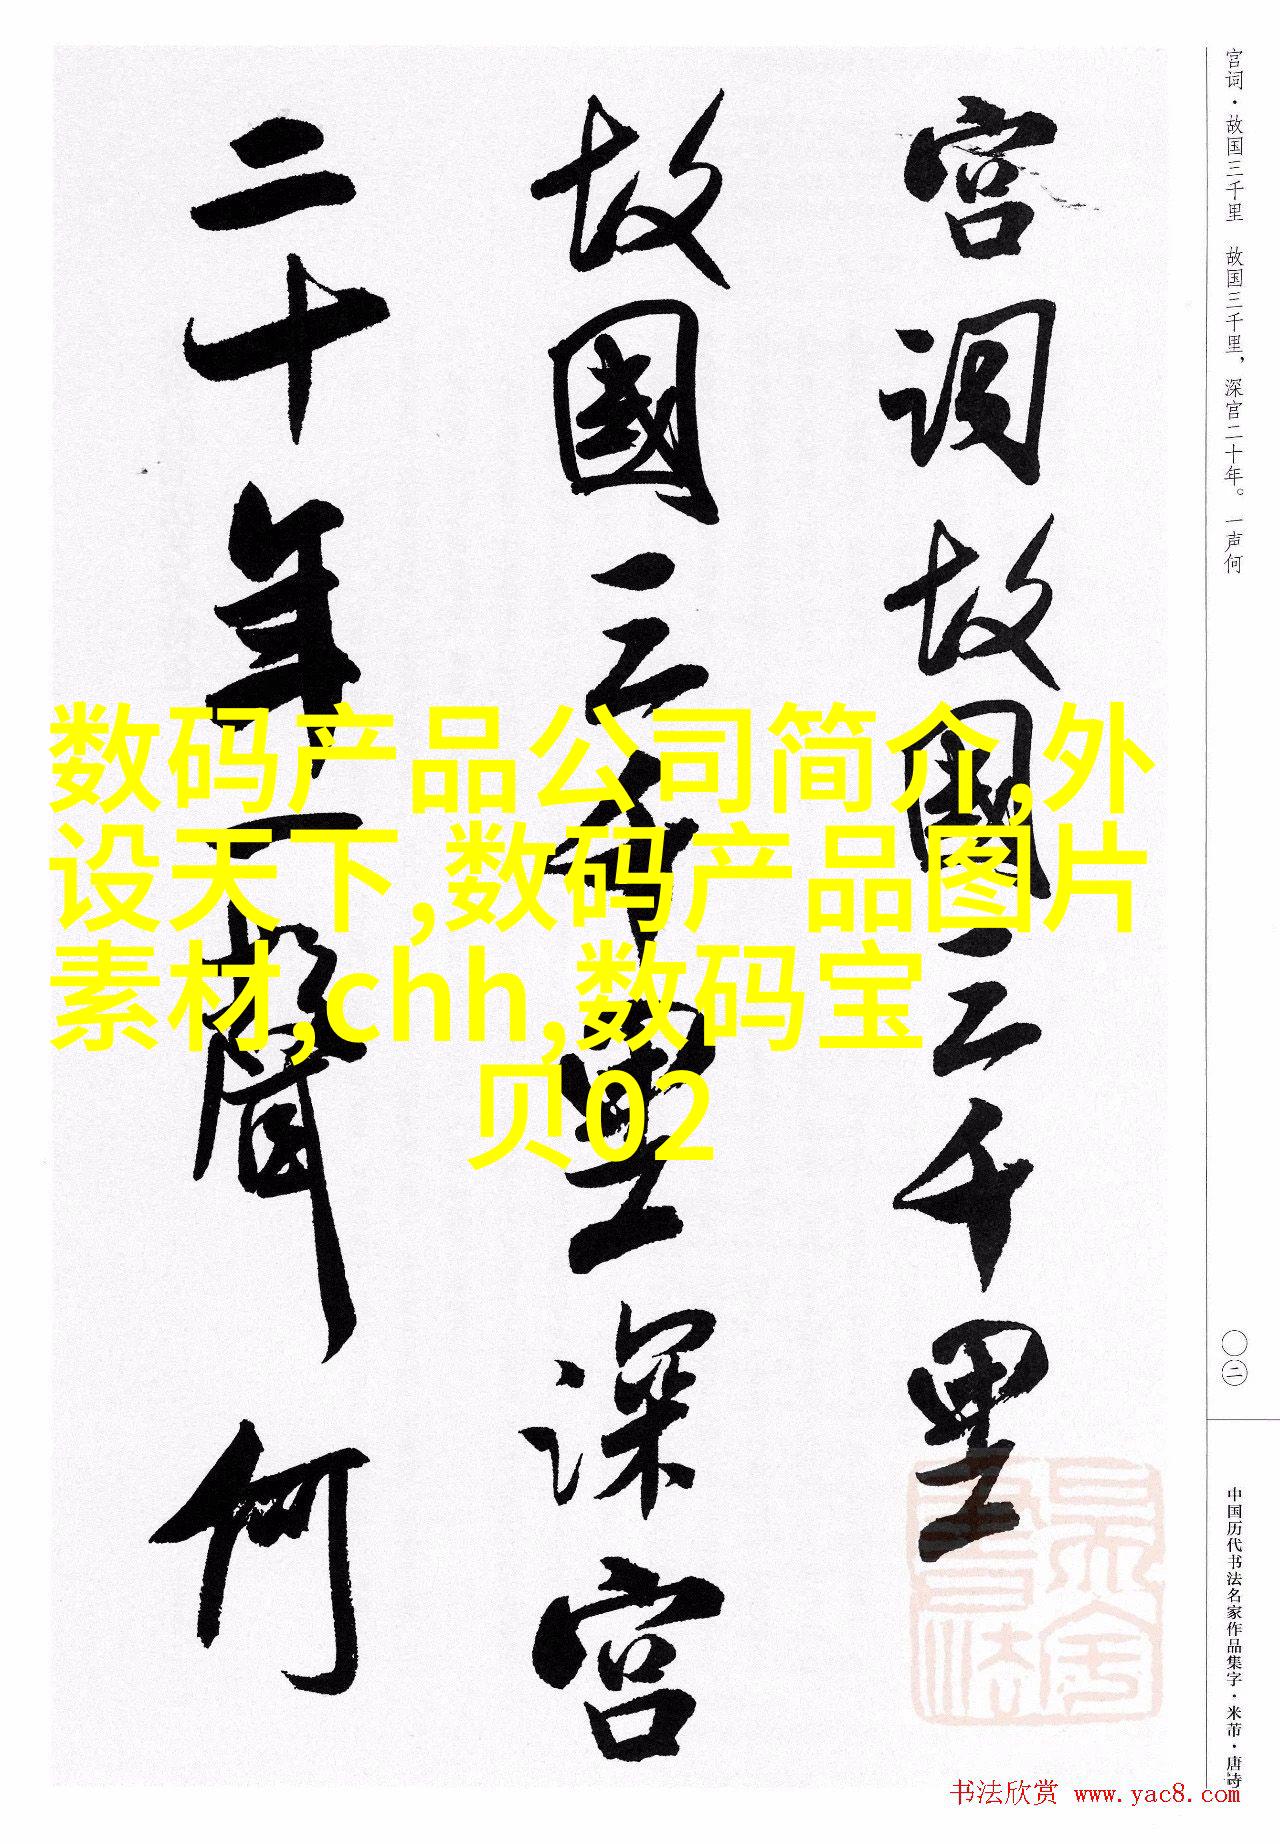 宫词·故国三千里　故国三千里，深宫二十年。一声何
宫词故國三千里
故國三千里深宫
二十年一聲何
数码产品公司简介,外
设天下,数码产品图片
素材,chh,数码宝
贝02
〇二
中国历代书法名家作品集字·米芾·唐诗
书法欣赏 www.yac8.com